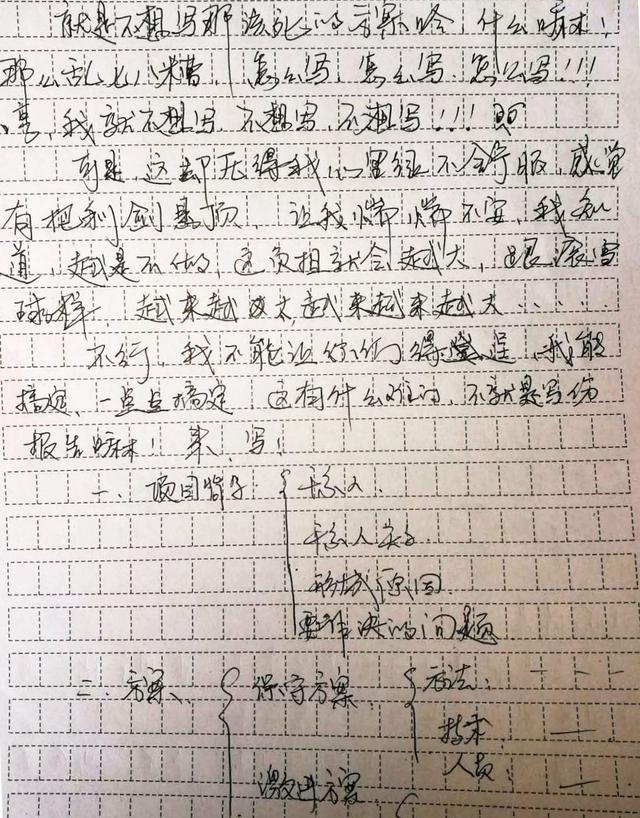 就是不想写那该死的方案哈,什么嘛!
那么乱七八糟,怎么写,怎么写,怎么写!!!
哼,我就不想写,不想写,不想写!!!
可是,这却无得我心里很不舒服,感觉
有把利剑悬顶,让我惴惴不安,我知
道,越是不做,这负担就会越大,跟滚雪
球样 越来越大,越来越来越大……
不行,我不能让你们得逞,我能
搞定,一点点搞定 这有什么难的,不就是写份
报告嘛!来,写!
一、项目背景
引入
形成原因
要解决的问题
二、方案、 保守方案、 方法:
技术
人员:
激进方案、